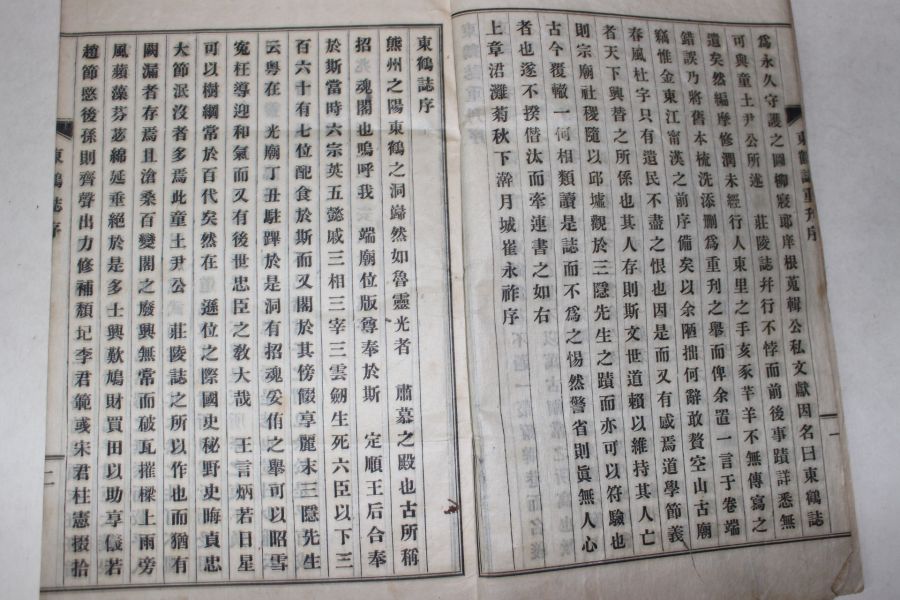 爲永久守護之圖柳寢郞庠根蒐輯公私文獻因名曰東鶴誌
可與童土尹公所述 莊陵誌幷行不悖而前後事蹟詳悉無
遺矣然編摩修潤未經行人東里之手亥豕芉羊不無傳寫之
錯誤乃將舊本梳洗添刪爲重刊之舉而俾余置一言于卷端
竊惟金東江甯漢之前序備矣以余陋拙何辭敢贅空山古廟
春風杜宇只有遺民不盡之恨也因是而又有感焉道學節義
者天下興替之所係也其人存則斯文世道賴以維持其人亡
則宗廟社稷隨以邱墟觀於三隱先生之蹟而亦可以符驗也
古今覆轍一何相類讀是誌而不爲之惕然警省則眞無人心
者也遂不揆僭汰而牽連書之如右
上章涒灘菊秋下澣月城崔永祚序
東鶴誌重刊序
一
東鶴誌序
熊州之陽東鶴之洞巋然如魯靈光者 肅慕之殿也古所稱
招魂閣也嗚呼我 端廟位版尊奉於斯 定順王后合奉
於斯當時六宗英五懿戚三相三宰三雲劒生死六臣以下三
百六十有七位配食於斯而又閣於其傍餟享麗末三隱先生
云粤在 光廟丁丑駐蹕於是洞有招魂妥侑之舉可以昭雪
寃枉導迎和氣而又有後世忠臣之敎大哉 王言炳若日星
可以樹綱常於百代矣然在 遜位之際國史秘野史晦貞忠
大節泯沒者多焉此童土尹公 莊陵誌之所以作也而猶有
闕漏者存焉且滄桑百變閣之廢興無常而破瓦摧樑上雨旁
風蘋藻芬苾綿延垂絕於是多士興歎鳩財買田以助享儀若
趙節愍後孫則齊聲出力修補頹圮李君範彧宋君柱憲掇拾
東鶴誌序
二